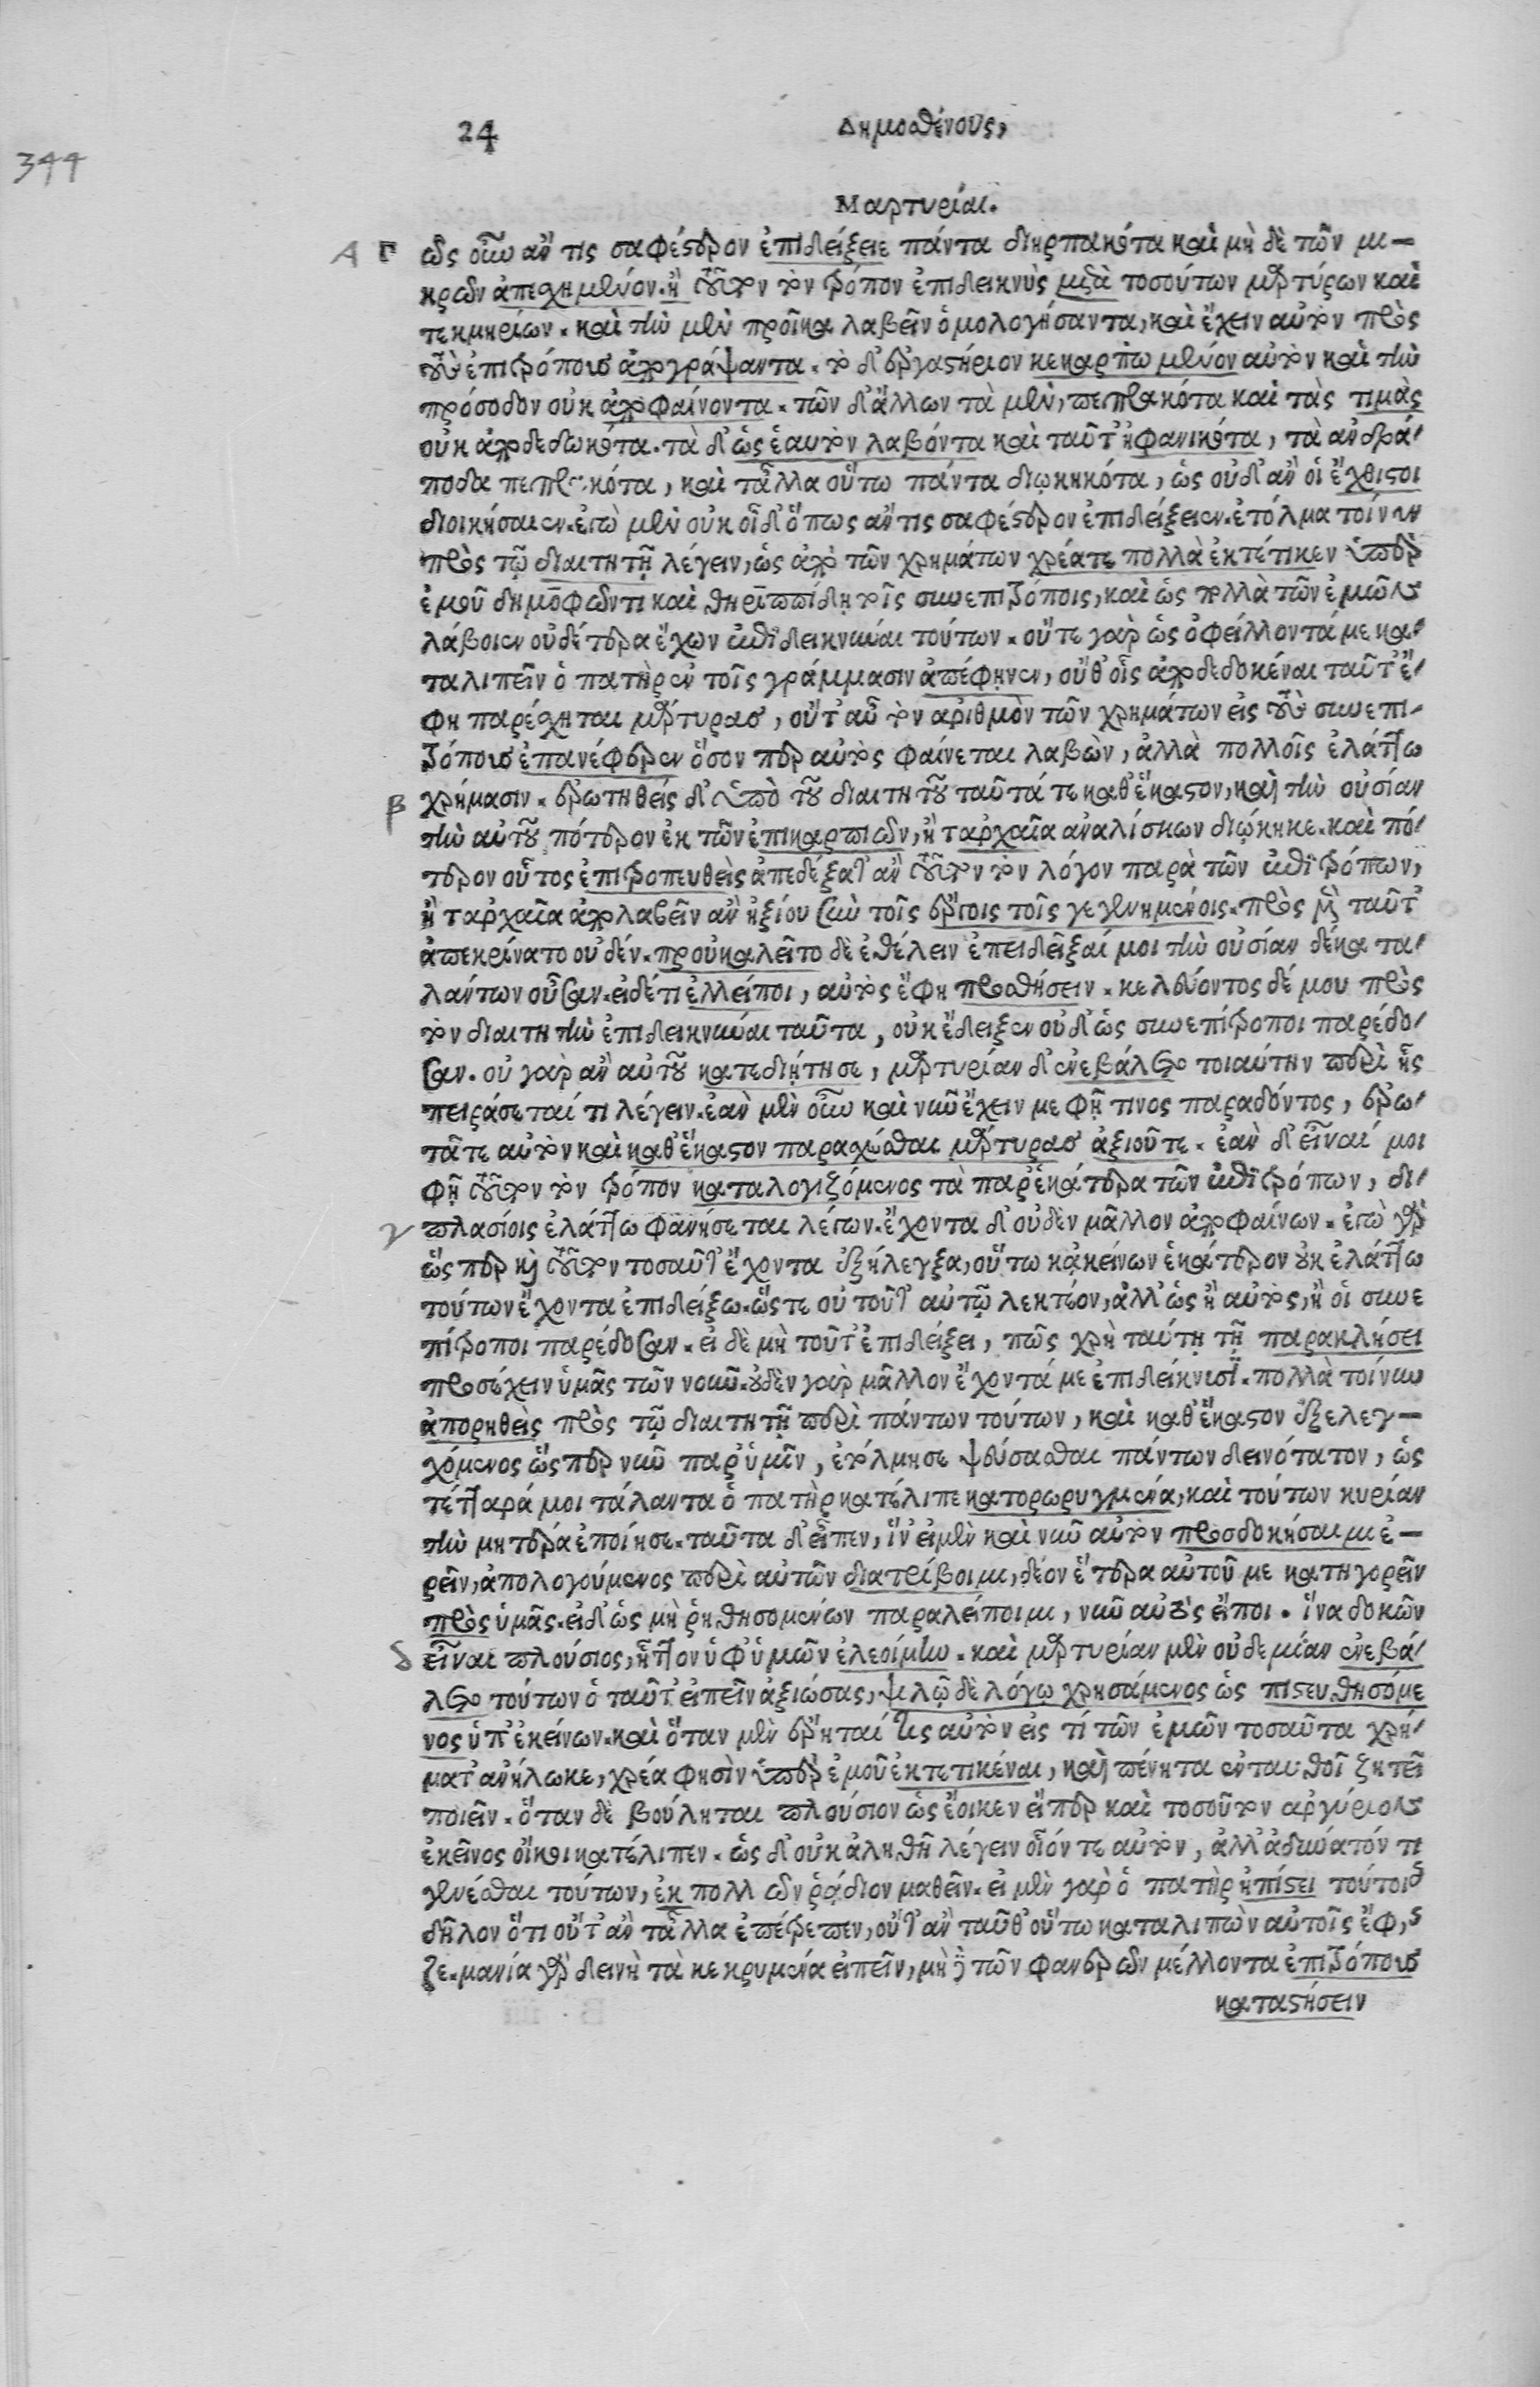 344
24
Δημοσθένους,
Μαρτυρίαι.
Α Γ ῶς οὖν ἄν τις σαφέστερον ἐπιδείξειε πάντα διηρπακότα καὶ μὴ δὲ τῶν μι-
κρῶν ἀπεσχημένον. ἢ τοῦτον τὸν τρόπον ἐπιδεικνὺς μετὰ τοσούτων μαρτύρων καὶ
τεκμηρίων. καὶ τὴν μὲν προῖκα λαβεῖν ὁμολογήσαντα, καὶ ἔχειν αὐτὸν πρὸς
τοὺς ἐπιτρόπους ἀπογράψαντα. τὸ δ' ἐργαστήριον κεκαρπωμένον αὐτὸν καὶ τὴν
πρόσοδον οὐκ ἀποφαίνοντα. τῶν δ' ἄλλων τὰ μὲν, πεπρακότα καὶ τὰς τιμὰς
οὐκ ἀποδεδωκότα. τὰ δ' ὡς ἑαυτὸν λαβόντα καὶ ταῦτ' ἠφανικότα, τὰ ἀνδρά/
ποδα πεπρακότα, καὶ τἆλλα οὕτω πάντα διῳκηκότα, ὡς οὐδ' ἂν οἱ ἔχθιστοι
διοικήσαιεν. ἐγὼ μὲν οὐκ οἶδ' ὅπως ἄν τις σαφέστερον ἐπιδείξειεν. ἐτόλμα τοίνυν
πρὸς τῷ διαιτητῇ λέγειν, ὡς ἀπὸ τῶν χρημάτων χρέατε πολλὰ ἐκτέτικεν ὑπὲρ
ἐμοῦ δημοφῶντι καὶ θηριππίδῃ τοῖς συνεπιτρόποις, καὶ ὡς πολλὰ τῶν ἐμῶν
λάβοιεν οὐδέτερα ἔχων ἐπιδεικνύναι τούτων. οὔτε γὰρ ὡς ὀφείλλοντά με κα/
ταλιπεῖν ὁ πατὴρ ἐν τοῖς γράμμασιν ἀπέφηνεν, οὔθ' οἷς ἀποδεδοκέναι ταῦτ' ἔ/
φη παρέχηται μάρτυρας, οὔτ' αὖ τὸν ἀριθμὸν τῶν χρημάτων εἰς τοὺς συνεπι-
τρόπους ἐπανέφερεν ὅσον περ αὐτὸς φαίνεται λαβὼν, ἀλλὰ πολλοῖς ἐλάττω
β χρήμασιν. ἐρωτηθεὶς δ' ὑπὸ τοῦ διαιτητοῦ ταῦτά τε καθ' ἕκαστον, καὶ τὴν οὐσίαν
τὴν αὐτοῦ πότερον ἐκ τῶν ἐπικαρπιῶν, ἢ ταρχαῖα ἀναλίσκων διῴκηκε. καὶ πό/
τερον οὗτος ἐπιτροπευθεὶς ἀπεδέξατ' ἂν τοῦτον τὸν λόγον παρὰ τῶν ἐπιτρόπων,
ἢ ταρχαῖα ἀπολαβεῖν ἂν ἠξίου σὺν τοῖς ἔργοις τοῖς γεγενημένοις. πρὸς μὲν ταῦτ'
ἀπεκρίνατο οὐδέν. προὐκαλεῖτο δὲ ἐθέλειν ἐπειδεῖξαί μοι τὴν οὐσίαν δέκα τα/
λάντων οὖσαν. εἰδέτι ἐλλείποι, αὐτὸς ἔφη προσθήσειν. κελεύοντος δέ μου πρὸς
τὸν διαιτητὴν ἐπιδεικνύναι ταῦτα, οὐκ ἔδειξεν οὐδ' ὡς συνεπίτροποι παρέδο/
σαν. οὐ γὰρ ἂν αὐτοῦ κατεδιῄτησε, μαρτυρίαν δ' ἐνεβάλετο τοιαύτην περὶ ἧς
πειράσεταί τι λέγειν. ἐὰν μὲν οὖν καὶ νῦν ἔχειν με φῇ τινος παραδόντος, ἐρω/
τᾶτε αὐτὸν καὶ καθ' ἕκαστον παρασχέσθαι μάρτυρας ἀξιοῦτε. ἐὰν δ' εἶναί μοι
φῇ τοῦτον τὸν τρόπον καταλογιζόμενος τὰ παρ' ἑκάτερα τῶν ἐπιτρόπων, δι/
γ πλασίοις ἐλάττω φανήσεται λέγων. ἔχοντα δ' οὐδὲν μᾶλλον ἀποφαίνων. ἐγὼ γὰρ
ὥσπερ καὶ τοῦτον τοσαῦτ' ἔχοντα ἐξήλεγξα, οὕτω κἀκείνων ἑκάτερον οὐκ ἐλάττω
τούτων ἔχοντα ἐπιδείξω. ὥστε οὐ τοῦτ' αὐτῷ λεκτέον, ἀλλ' ὡς ἢ αὐτὸς, ἢ οἱ συνε
πίτροποι παρέδοσαν. εἰ δὲ μὴ τοῦτ' ἐπιδείξει, πῶς χρὴ ταύτῃ τῇ παρακλήσει
προσέχειν ὑμᾶς τῶν νοῦν. οὐδὲν γὰρ μᾶλλον ἔχοντά με ἐπιδείκνυσι. πολλὰ τοίνυν
ἀπορηθεὶς πρὸς τῷ διαιτητῇ περὶ πάντων τούτων, καὶ καθ' ἕκαστον ἐξελεγ-
χόμενος ὥσπερ νῦν παρ' ὑμῖν, ἐτόλμησε ψεύσασθαι πάντων δεινότατον, ὡς
τέτταρά μοι τάλαντα ὁ πατὴρ κατέλιπε κατορωρυγμένα, καὶ τούτων κυρίαν
τὴν μητέρα ἐποίησε. ταῦτα δ' εἶπεν, ἵν' εἰ μὲν καὶ νῦν αὐτὸν προσδοκήσαιμι ἐ-
ρεῖν, ἀπολογούμενος περὶ αὐτῶν διατρίβοιμι, δέον ἕτερα αὐτοῦ με κατηγορεῖν
πρὸς ὑμᾶς. εἰδ' ὡς μὴ ῥηθησομένων παραλείποιμι, νῦν αὐτὸς εἴποι. ἵνα δοκῶν
δ εἶναι πλούσιος, ἧττον ὑφ' ὑμῶν ἐλεοίμην. καὶ μαρτυρίαν μὲν οὐδεμίαν ἐνεβά/
λετο τούτων ὁ ταῦτ' εἰπεῖν ἀξιώσας, ψιλῷ δὲ λόγῳ χρησάμενος ὡς πιστευθησόμε
νος ὑπ' ἐκείνων. καὶ ὅταν μὲν ἔρηταί τις αὐτὸν εἰς τί τῶν ἐμῶν τοσαῦτα χρή/
ματ' ἀνήλωκε, χρέα φησὶν ὑπὲρ ἐμοῦ ἐκτετικέναι, καὶ πένητα ἐνταυθοῖ ζητεῖ
ποιεῖν. ὅταν δὲ βούληται πλούσιον ὡς ἔοικεν εἴπερ καὶ τοσοῦτον ἀργύριον
ἐκεῖνος οἴκοι κατέλιπεν. ὡς δ' οὐκ ἀληθῆ λέγειν οἷόν τε αὐτὸν, ἀλλ' ἀδύνατόν τι
γενέσθαι τούτων, ἐκ πολλῶν ῥᾴδιον μαθεῖν. εἰ μὲν γὰρ ὁ πατὴρ ἠπίστει τούτοις
δῆλον ὅτι οὔτ' ἂν τἆλλα ἐπέτρεπεν, οὔτ' ἂν ταῦθ' οὕτω καταλιπὼν αὐτοῖς ἔφρα
ζε. μανία γὰρ δεινὴ τὰ κεκρυμένα εἰπεῖν, μὴ δὲ τῶν φανερῶν μέλλοντα ἐπιτρόπους
καταστήσειν